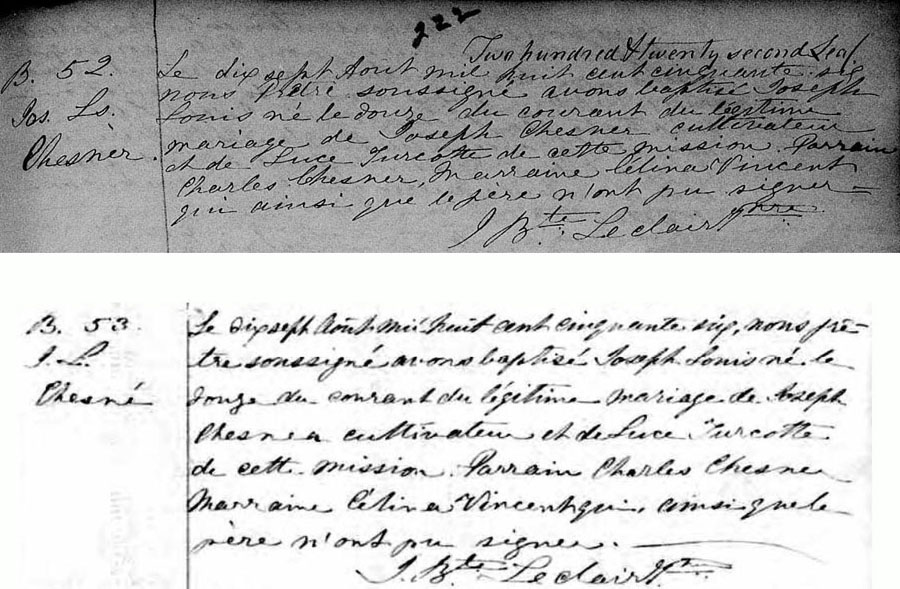 222
Two hundred & twenty second Leaf
B. 52.
Jos. Ls.
Chesner.
Le dix sept Aout mil huit cent cinquante six
nous Ptre soussigné avons baptisé Joseph
Louis né le douze du courant du légitime
mariage de Joseph Chesner cultivateur
et de Luce Turcotte de cette mission. Parrain
Charles Chesner, Marraine Célina Vincent
qui ainsi que le père n'ont pu signer
J Bte. Leclair Ptre
B. 53
J. L.
Chesné
Le dix sept Août mil huit cent cinquante six, nous prê-
tre soussigné avons baptisé Joseph Louis né le
douze du courant du légitime mariage de Joseph
Chesne cultivateur et de Luce Turcotte
de cette mission. Parrain Charles Chesne
Marraine Célina Vincent qui, ainsi que le
père n'ont pu signer.
J. Bte. Leclair Ptre